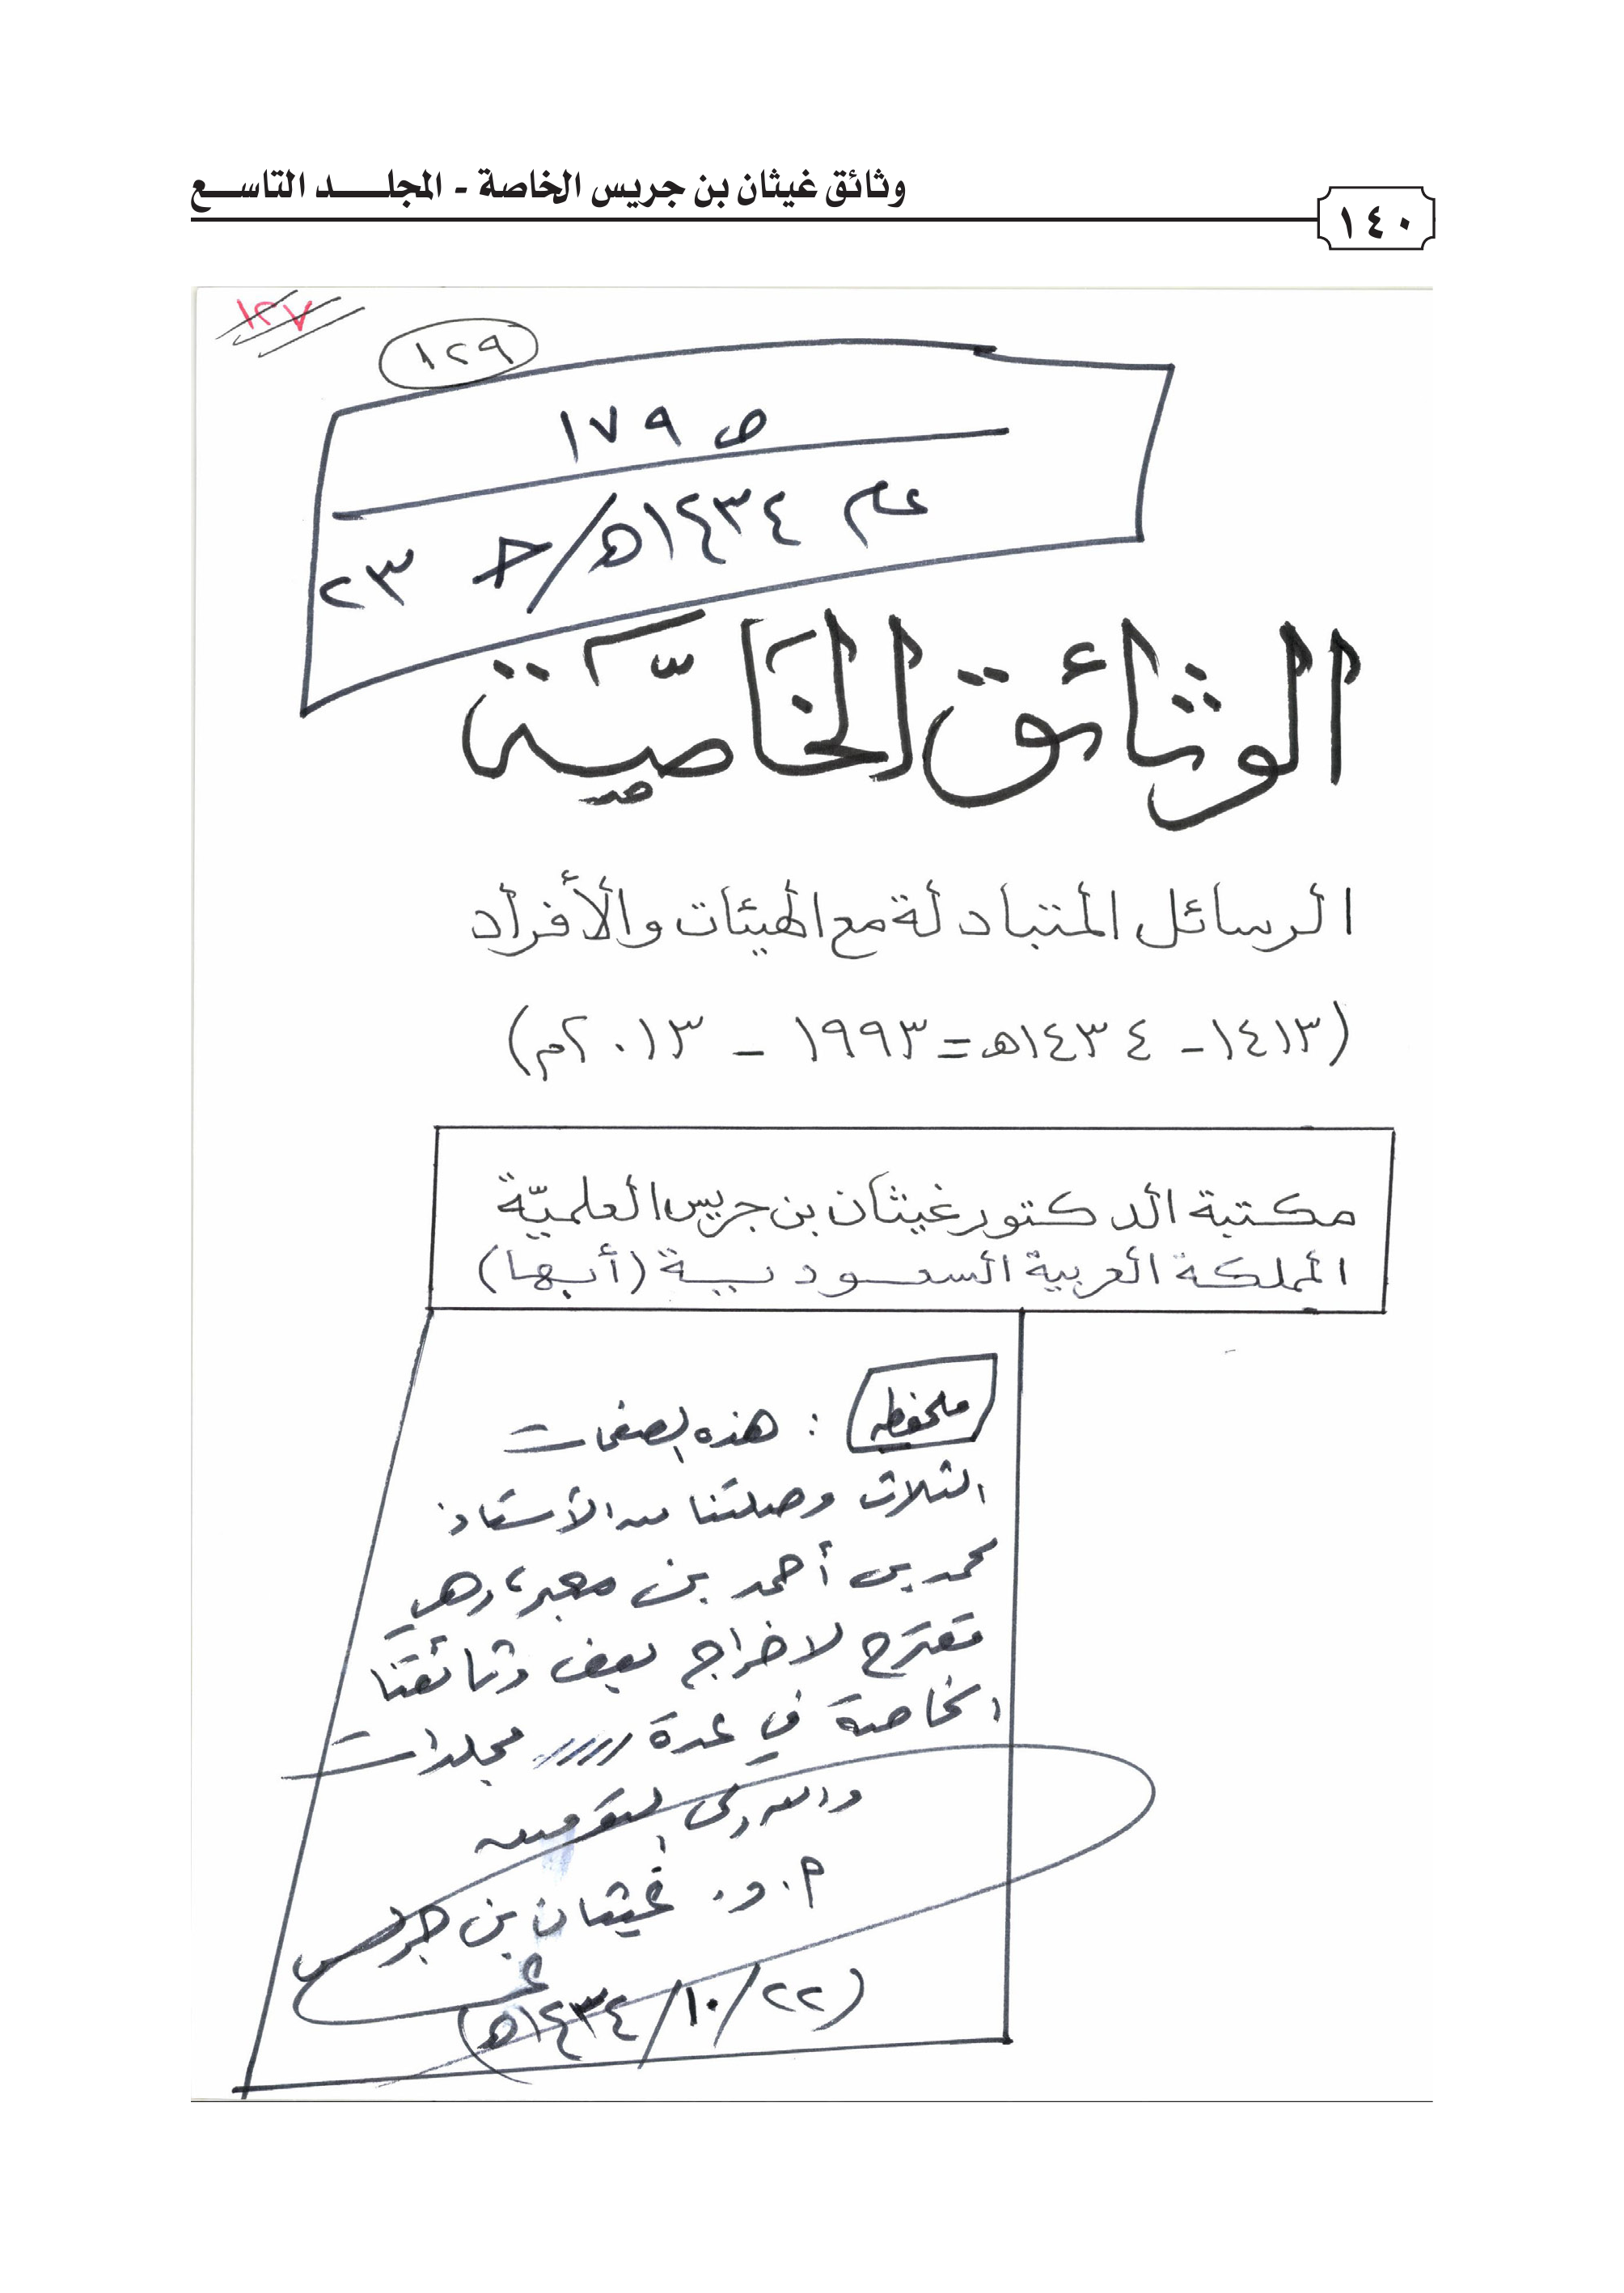 وثائق غيثان بن جريس الخاصة - المجلـــد التاســع
١٤٠
١٢٧
١٢٩
ص ١٧٩
عام ١٤٣٤ه/ح ٢٣
الوثائق الخاصّة
الرسائل المتبادلة مع الهيئات والأفراد
(١٤١٣ - ١٤٣٤هـ = ١٩٩٣ - ٢٠١٣م)
مكتبة الدكتور غيثان بن جريس العلميّة
المملكة العربية السعودية (أبها)
ملحوظة : هذه الصفحات
الثلاث وصلتنا من الأستاذ
محمد بن أحمد بن معبر، وهي
تقترح لإخراج بعض وثائقنا
الخاصة في عدة مجلدات
والله ولي التوفيق
أ. د. غيثان بن جريس
(٢٢/١٠/١٤٣٤ه)